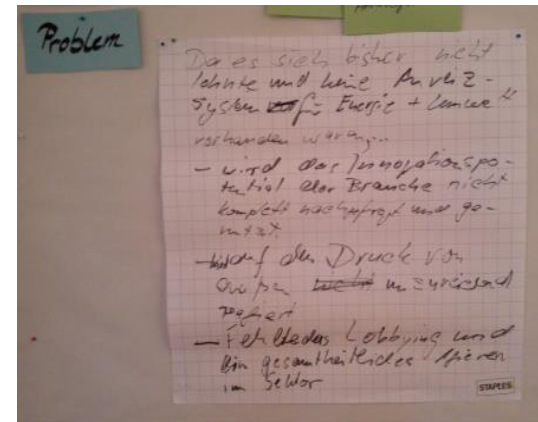 Problem
Da es sich bisher nicht
lohnte und keine Anreiz-
System für Energie + Umwelt
vorhanden waren...
- wird das Innovationspo-
tential der Branche nicht
komplett nachgefragt und ge-
nutzt.
- auf den Druck von
außen unzureichend
reagiert
- Fehlendes Lobbying und
kein gesamtheitliches Agieren
im Sektor
STAPLES